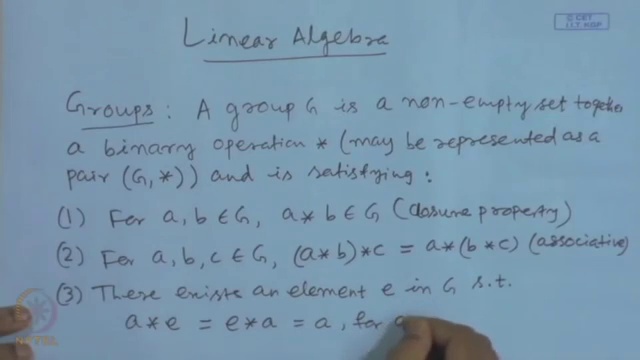 © CET
I.I.T. KGP
Linear Algebra
Groups : A group G is a non-empty set together
a binary operation * (may be represented as a
pair (G, *)) and is satisfying :
(1) For a, b ∈ G, a * b ∈ G (closure property)
(2) For a, b, c ∈ G, (a * b) * c = a * (b * c) (associative)
(3) There exists an element e in G s.t.
a * e = e * a = a, for
NPTEL